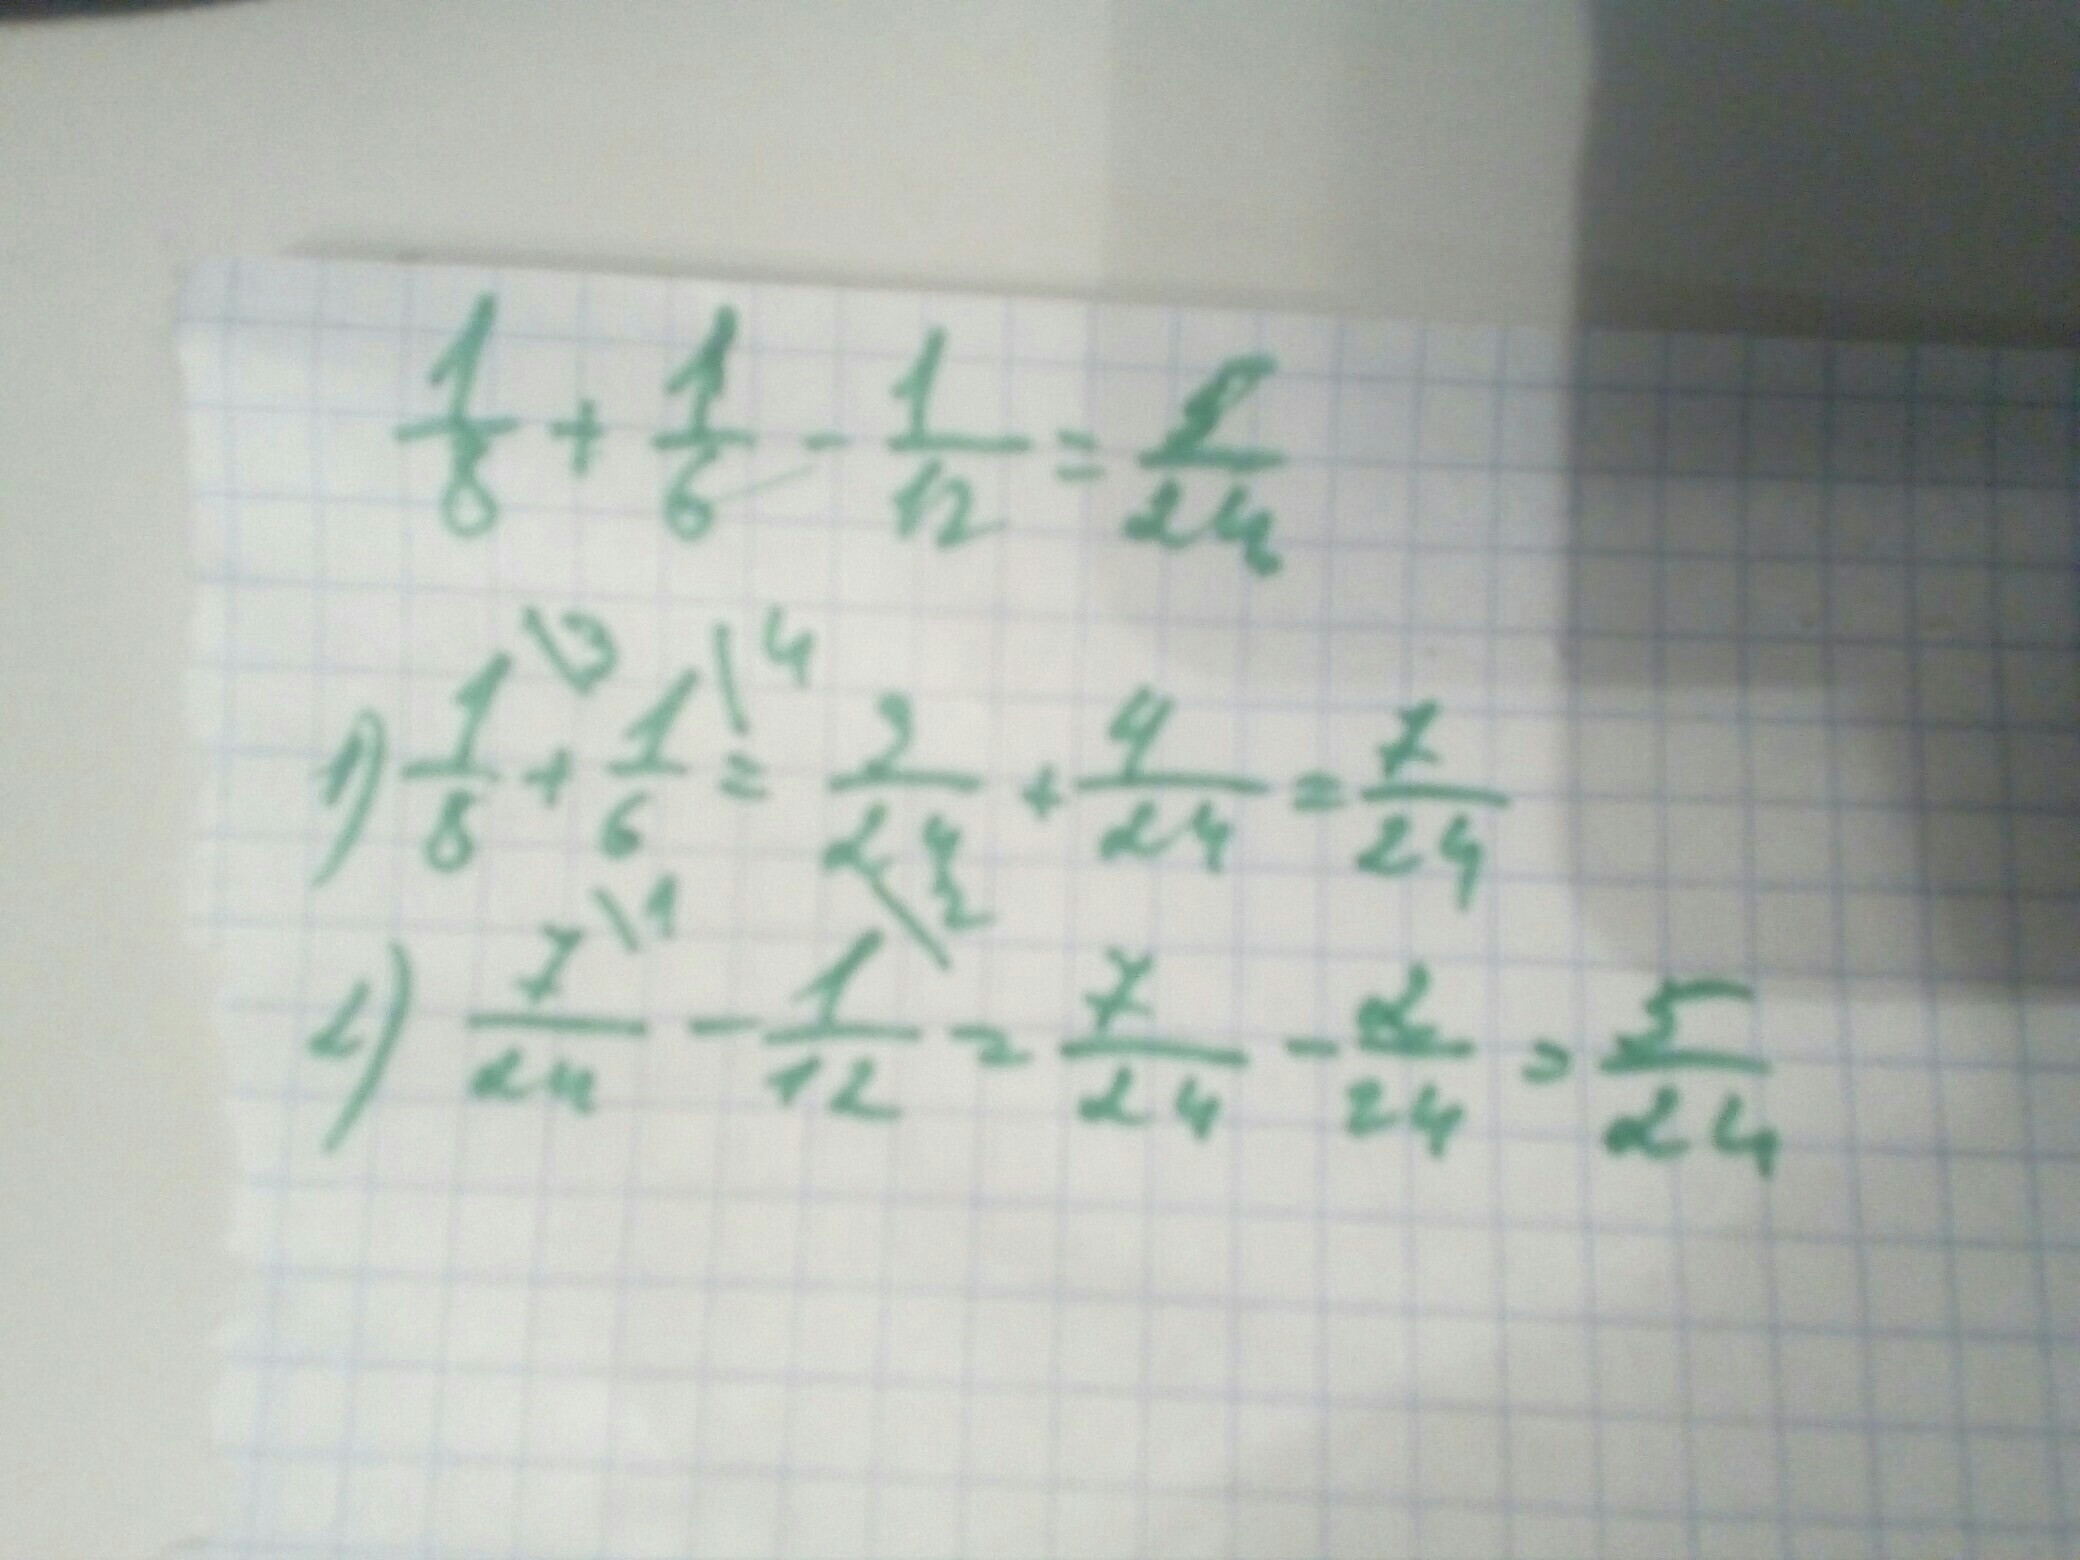 1/8 + 1/6 - 1/12 = 5/24
1) 1/8 \3 + 1/6 \4 = 3/24 + 4/24 = 7/24
2) 7/24 \1 - 1/12 \2 = 7/24 - 2/24 = 5/24